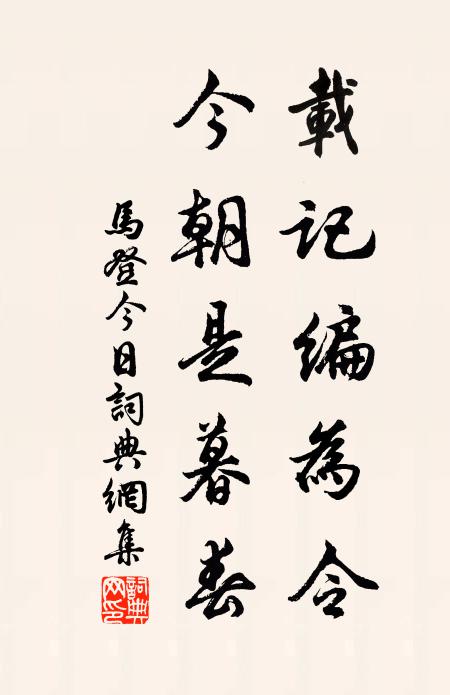 載記編為令
今朝是暮春
馬登今日詞典網集
詞典網印